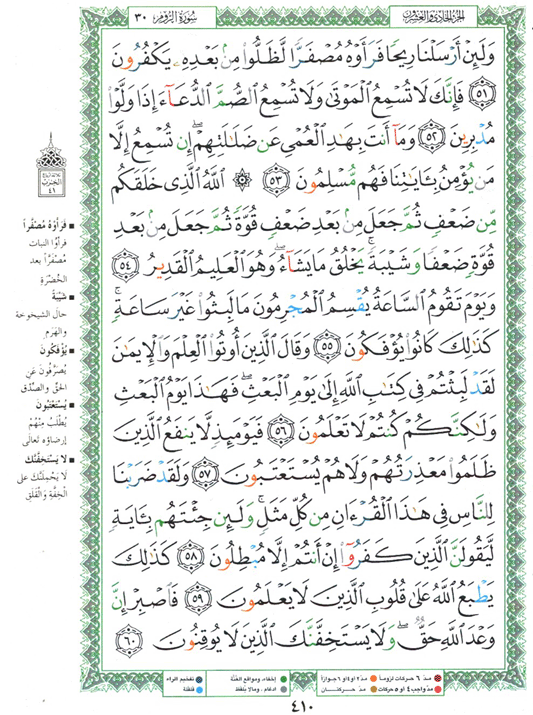 الجزء الحادي والعشرون
سورة الروم ٣٠
وَلَئِنْ أَرْسَلْنَا رِيحًا فَرَأَوْهُ مُصْفَرًّا لَّظَلُّوا۟ مِنۢ بَعْدِهِۦ يَكْفُرُونَ
٥١ فَإِنَّكَ لَا تُسْمِعُ ٱلْمَوْتَىٰ وَلَا تُسْمِعُ ٱلصُّمَّ ٱلدُّعَآءَ إِذَا وَلَّوْا۟
مُدْبِرِينَ ٥٢ وَمَآ أَنتَ بِهَـٰدِ ٱلْعُمْىِ عَن ضَلَـٰلَتِهِمْ ۖ إِن تُسْمِعُ إِلَّا
مَن يُؤْمِنُ بِـَٔايَـٰتِنَا فَهُم مُّسْلِمُونَ ٥٣ ۞ ٱللَّهُ ٱلَّذِى خَلَقَكُم
مِّن ضَعْفٍ ثُمَّ جَعَلَ مِنۢ بَعْدِ ضَعْفٍ قُوَّةً ثُمَّ جَعَلَ مِنۢ بَعْدِ
قُوَّةٍ ضَعْفًا وَشَيْبَةً ۚ يَخْلُقُ مَا يَشَآءُ ۖ وَهُوَ ٱلْعَلِيمُ ٱلْقَدِيرُ ٥٤
وَيَوْمَ تَقُومُ ٱلسَّاعَةُ يُقْسِمُ ٱلْمُجْرِمُونَ مَا لَبِثُوا۟ غَيْرَ سَاعَةٍ ۚ
كَذَٰلِكَ كَانُوا۟ يُؤْفَكُونَ ٥٥ وَقَالَ ٱلَّذِينَ أُوتُوا۟ ٱلْعِلْمَ وَٱلْإِيمَـٰنَ
لَقَدْ لَبِثْتُمْ فِى كِتَـٰبِ ٱللَّهِ إِلَىٰ يَوْمِ ٱلْبَعْثِ ۖ فَهَـٰذَا يَوْمُ ٱلْبَعْثِ
وَلَـٰكِنَّكُمْ كُنتُمْ لَا تَعْلَمُونَ ٥٦ فَيَوْمَئِذٍ لَّا يَنفَعُ ٱلَّذِينَ
ظَلَمُوا۟ مَعْذِرَتُهُمْ وَلَا هُمْ يُسْتَعْتَبُونَ ٥٧ وَلَقَدْ ضَرَبْنَا
لِلنَّاسِ فِى هَـٰذَا ٱلْقُرْءَانِ مِن كُلِّ مَثَلٍ ۚ وَلَئِن جِئْتَهُم بِـَٔايَةٍ
لَّيَقُولَنَّ ٱلَّذِينَ كَفَرُوٓا۟ إِنْ أَنتُمْ إِلَّا مُبْطِلُونَ ٥٨ كَذَٰلِكَ
يَطْبَعُ ٱللَّهُ عَلَىٰ قُلُوبِ ٱلَّذِينَ لَا يَعْلَمُونَ ٥٩ فَٱصْبِرْ إِنَّ
وَعْدَ ٱللَّهِ حَقٌّ ۖ وَلَا يَسْتَخِفَّنَّكَ ٱلَّذِينَ لَا يُوقِنُونَ ٦٠
الحزب
٤١
■ فَرَأَوْهُ مُصْفَرًّا
فرَأوُا النبات
مُصْفَرًّا بعد
الخُضْرَةِ
■ شَيْبَةً
حال الشيخوخة
والهَرَمِ
■ يُؤْفَكُونَ
يُصْرَفُونَ عَنِ
الحقِّ والصِّدْقِ
■ يُسْتَعْتَبُونَ
يُطْلَبُ مِنْهُمْ
إرضاؤه تعالى
■ لَا يَسْتَخِفَّنَّكَ
لا يَحْمِلَنَّكَ على
الخِفَّةِ والقَلَقِ
مدّ ٦ حركات لزوماً مدّ ٢ أو ٤ أو ٦ جوازاً إخفاء، ومواقع الغُنَّة تفخيم الراء
مدّ واجب ٤ أو ٥ حركات مدّ حركتان ادغام، وما لا يُلفظ قلقلة
٤١٠